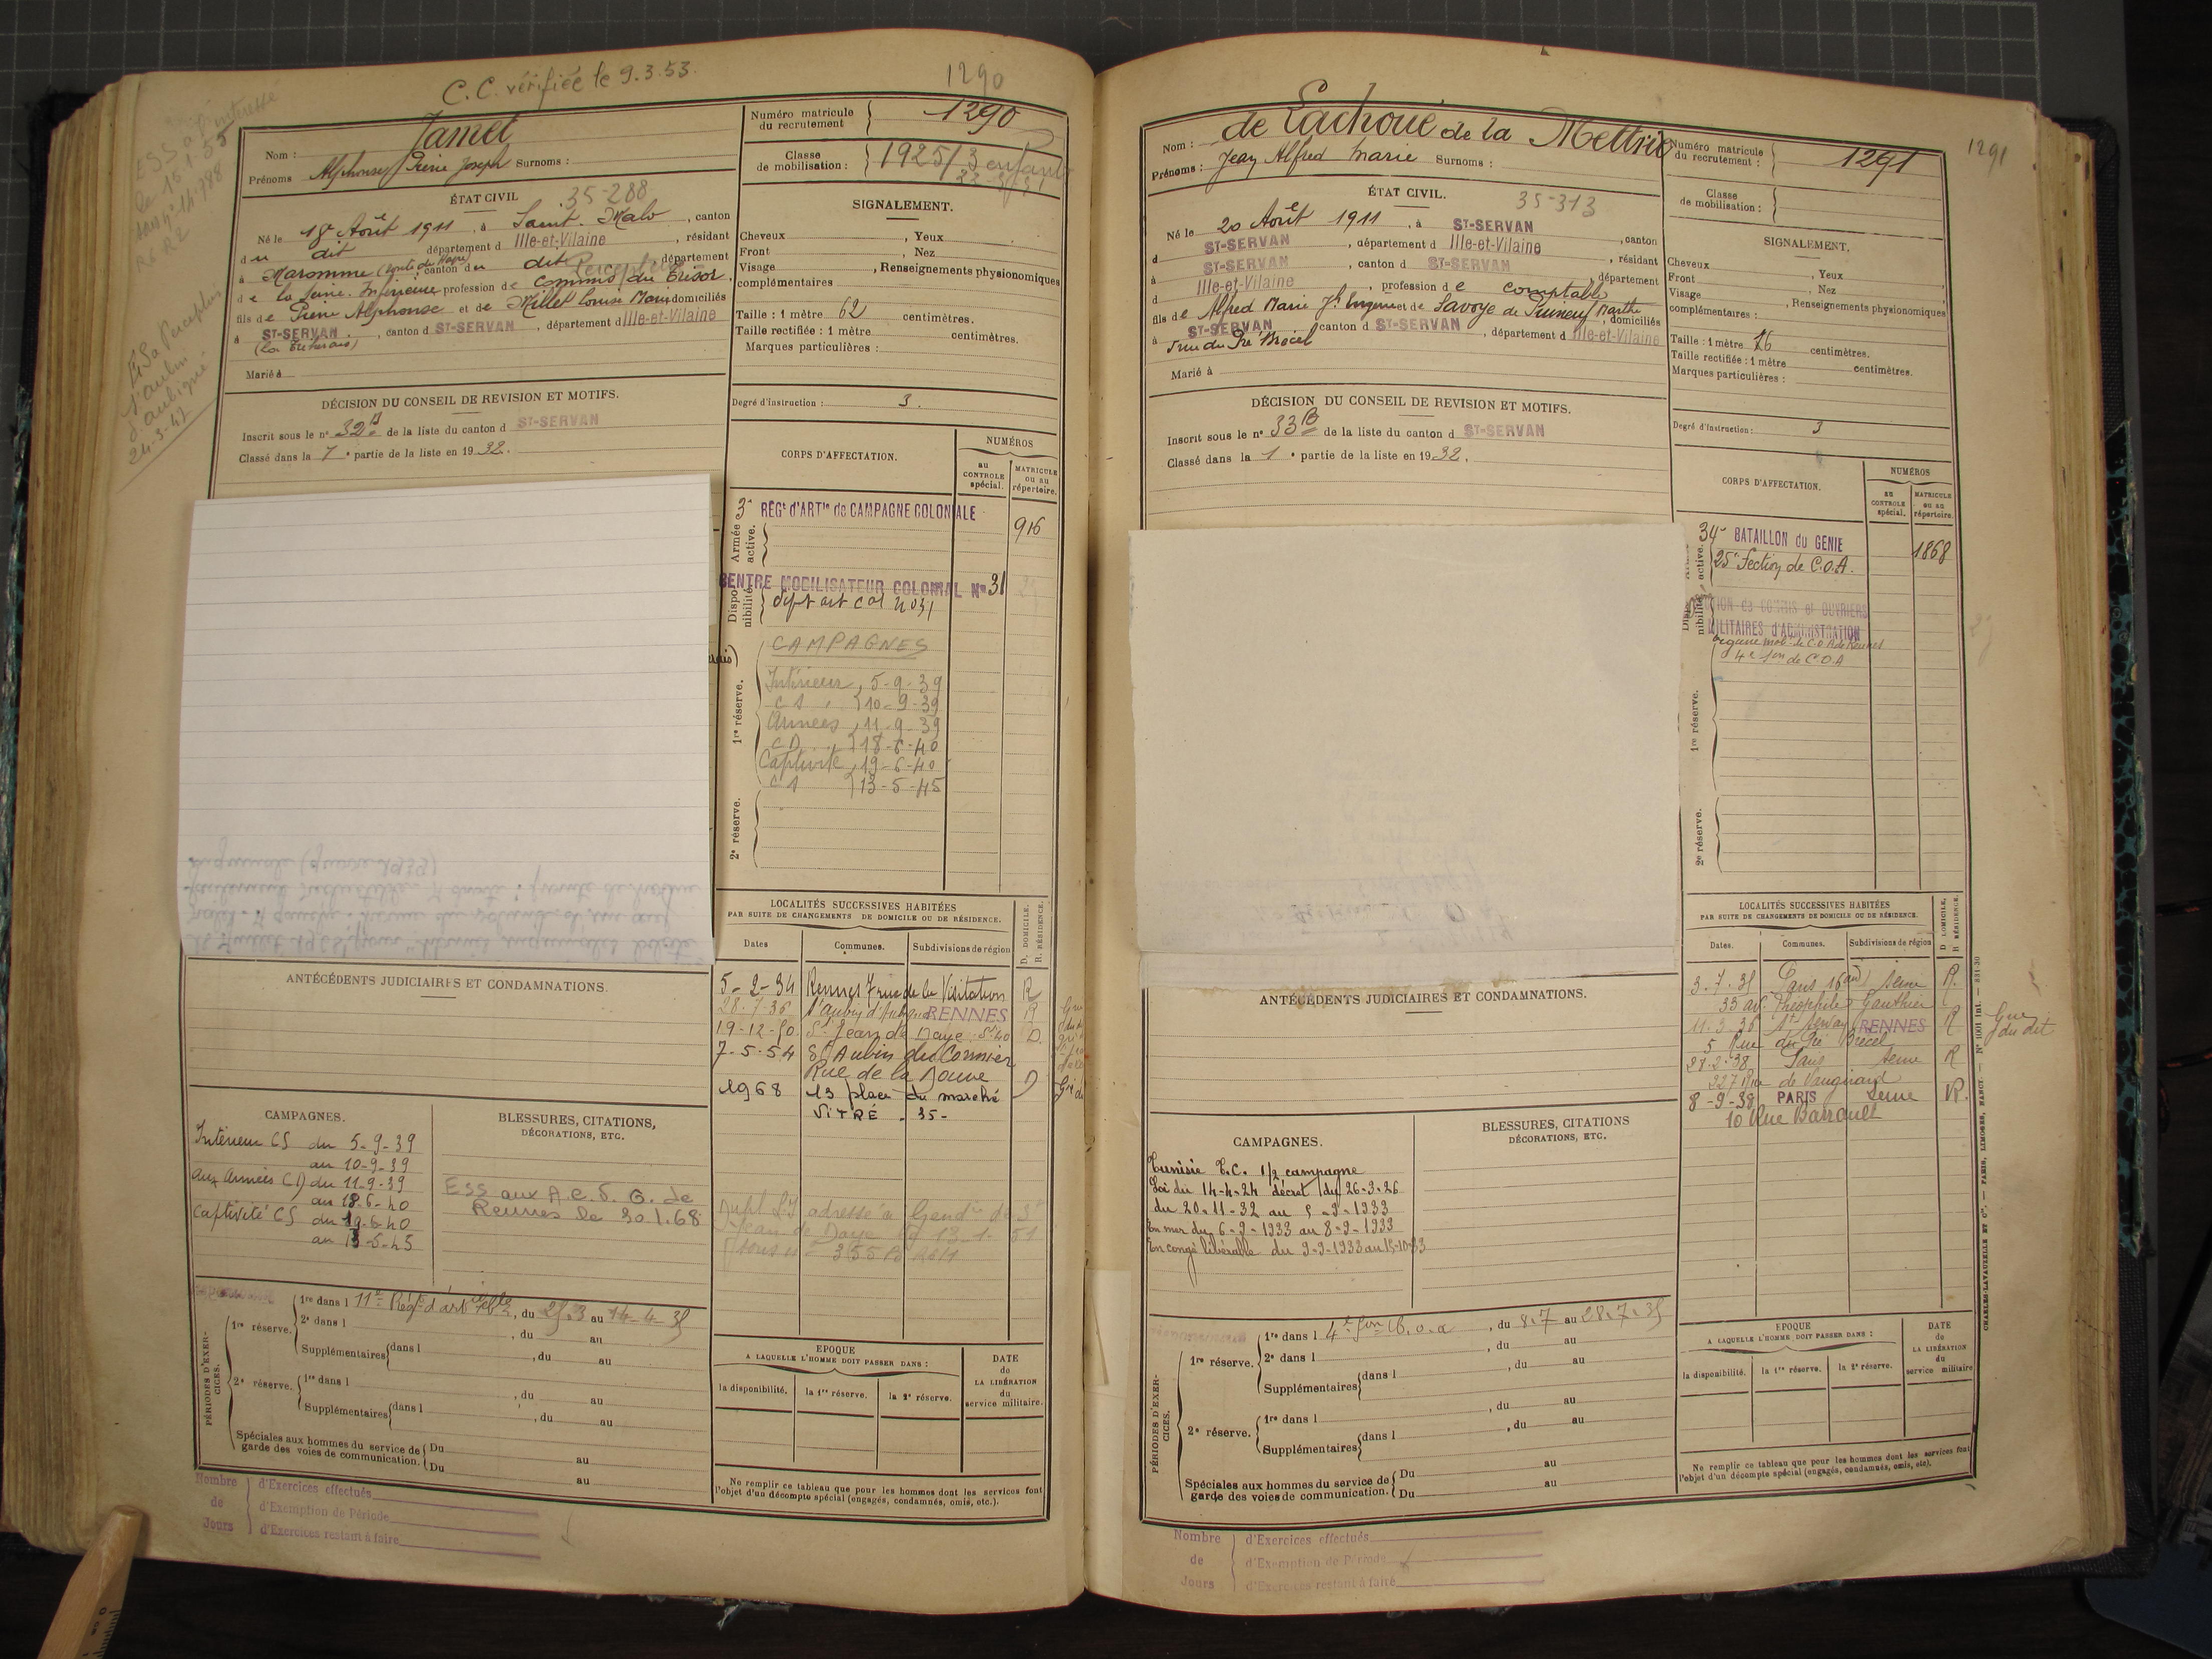 C.C. vérifiée le 9.3.53.
1290
Nom : Jamet
Prénoms Alphonse Pierre Joseph Surnoms :
Numéro matricule du recrutement 1290
Classe de mobilisation : 1925/3 enfants
ÉTAT CIVIL
35-288
Né le 18 Août 1911, à Saint-Malo, canton
du dit département d Ille-et-Vilaine, résidant
à Maromme, canton du dit, département
de la Seine-Inférieure profession de commis du Trésor
fils de Pierre Alphonse et de Millet Louise Marie domiciliés
à ST-SERVAN, canton d ST-SERVAN, département d Ille-et-Vilaine
Marié à
SIGNALEMENT.
Cheveux , Yeux
Front , Nez
Visage , Renseignements physionomiques
complémentaires :
Taille : 1 mètre 62 centimètres.
Taille rectifiée : 1 mètre centimètres.
Marques particulières :
Degré d'instruction : 3.
DÉCISION DU CONSEIL DE REVISION ET MOTIFS.
Inscrit sous le n° 32 B de la liste du canton d ST-SERVAN
Classé dans la 1e partie de la liste en 1932.
E.S. à Perception
St Aubin
d'Aubigné
24-3-47
CORPS D'AFFECTATION.
NUMÉROS
au CONTROLE spécial.
MATRICULE ou au répertoire.
Armée active.
3e RÉGt d'ARTie de CAMPAGNE COLONIALE
916
Disponibilité
CENTRE MOBILISATEUR COLONIAL N° 31
Dépt art col n°31
CAMPAGNES
Intérieur 5-9-39
CS 10-9-39
Armées 11-9-39
CD 18-6-40
Captivité 19-6-40
CS 13-5-45
1re réserve.
2e réserve.
LOCALITÉS SUCCESSIVES HABITÉES
PAR SUITE DE CHANGEMENTS DE DOMICILE OU DE RÉSIDENCE.
D. DOMICILE. R. RÉSIDENCE.
Dates Communes. Subdivisions de région
5-2-34 Rennes 7 rue de la Visitation R
28-7-36 St Aubin d'Aubigné RENNES R
19-12-50 St Jean de Daye St Lô D.
7-5-54 St Aubin du Cormier
Rue de la Douve D
1968 13 place du marché
VITRÉ - 35-
ANTÉCÉDENTS JUDICIAIRES ET CONDAMNATIONS.
CAMPAGNES.
Intérieur CS du 5-9-39
au 10-9-39
aux Armées CD du 11-9-39
au 18-6-40
Captivité CS du 19-6-40
au 13-5-45
BLESSURES, CITATIONS,
DÉCORATIONS, ETC.
ESS aux A.C.V.G. de
Rennes le 30.1.68
PÉRIODES D'EXERCICES.
1re réserve.
1re dans l 11e Régt d'art colle, du 25.3 au 14-4-35
2e dans l , du au
Supplémentaires dans l , du au
2e réserve.
1re dans l , du au
Supplémentaires dans l , du au
Spéciales aux hommes du service de Du au
garde des voies de communication. Du au
EPOQUE
A LAQUELLE L'HOMME DOIT PASSER DANS :
la disponibilité. la 1re réserve. la 2e réserve.
DATE de LA LIBÉRATION du service militaire.
Ne remplir ce tableau que pour les hommes dont les services font
l'objet d'un décompte spécial (engagés, condamnés, omis, etc.).
Nombre de Jours
d'Exercices effectués
d'Exemption de Période
d'Exercices restant à faire
1291
Nom : de Lachoüe de la Mettrie
Prénoms : Jean Alfred Marie Surnoms :
Numéro matricule du recrutement : 1291
Classe de mobilisation :
ÉTAT CIVIL.
35-313
Né le 20 Août 1911, à ST-SERVAN
d ST-SERVAN, département d Ille-et-Vilaine, canton
à ST-SERVAN, canton d ST-SERVAN, résidant
d Ille-et-Vilaine, profession de comptable, département
fils de Alfred Marie Jh Eugène et de Savoye de Puineuf Marthe, domiciliés
à ST-SERVAN canton d ST-SERVAN, département d Ille-et-Vilaine
5 rue du Pré Brécel
Marié à
SIGNALEMENT.
Cheveux , Yeux
Front , Nez
Visage , Renseignements physionomiques
complémentaires :
Taille : 1 mètre 76 centimètres.
Taille rectifiée : 1 mètre centimètres.
Marques particulières :
Degré d'instruction : 3
DÉCISION DU CONSEIL DE REVISION ET MOTIFS.
Inscrit sous le n° 33 B de la liste du canton d ST-SERVAN
Classé dans la 1e partie de la liste en 1932.
CORPS D'AFFECTATION.
NUMÉROS
au CONTROLE spécial.
MATRICULE ou au répertoire.
34e BATAILLON du GÉNIE 1868
25e Section de C.O.A.
SECTION de COMMIS et OUVRIERS
MILITAIRES d'ADMINISTRATION
Organe mob. de C.O.A de Rennes
4e Son de C.O.A
1re réserve.
2e réserve.
LOCALITÉS SUCCESSIVES HABITÉES
PAR SUITE DE CHANGEMENTS DE DOMICILE OU DE RÉSIDENCE.
D DOMICILE, R RÉSIDENCE.
Dates. Communes. Subdivisions de région
3-7-35 Paris 16e Seine R.
33 av. Théophile Gauthier
11-3-36 St Servan RENNES R
5 Rue du Pré Brécel
21-2-38 Paris Seine R
227 Rue de Vaugirard
8-9-38 PARIS Seine R.
10 Rue Barrault
ANTÉCÉDENTS JUDICIAIRES ET CONDAMNATIONS.
CAMPAGNES.
Tunisie T.C. 1/2 campagne
Loi du 14-4-24 décret du 26-3-26
du 20-11-32 au 5-9-1933
En mer du 6-9-1933 au 8-9-1933
En congé libérable du 9-9-1933 au 15-10-33
BLESSURES, CITATIONS
DÉCORATIONS, ETC.
PÉRIODES D'EXERCICES.
1re réserve.
1re dans l 4e Son C.O.A, du 8.7 au 28.7.35
2e dans l , du au
Supplémentaires dans l , du au
2e réserve.
1re dans l , du au
Supplémentaires dans l , du au
Spéciales aux hommes du service de Du au
garde des voies de communication. Du au
EPOQUE
A LAQUELLE L'HOMME DOIT PASSER DANS :
la disponibilité. la 1re réserve. la 2e réserve.
DATE de LA LIBÉRATION du service militaire
Ne remplir ce tableau que pour les hommes dont les services font
l'objet d'un décompte spécial (engagés, condamnés, omis, etc).
CHARLES-LAVAUZELLE ET Cie. — PARIS, LIMOGES, NANCY. — N° 1001 Int. — 831-30
Nombre de Jours
d'Exercices effectués
d'Exemption de Période
d'Exercices restant à faire